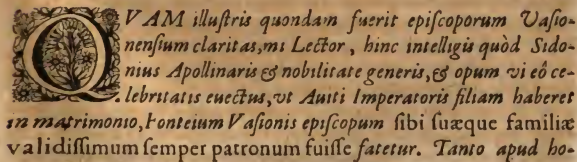 QVAM illustris quondam fuerit episcoporum Vasio-
nensium claritas, mi Lector, hinc intelligis quòd Sido-
nius Apollinaris & nobilitate generis, & opum vi eô ce-
lebritatis euectus, vt Auiti Imperatoris filiam haberet
in matrimonio, Fonteium Vasionis episcopum sibi suæque familiæ
validissimum semper patronum fuisse fatetur. Tanto apud ho-